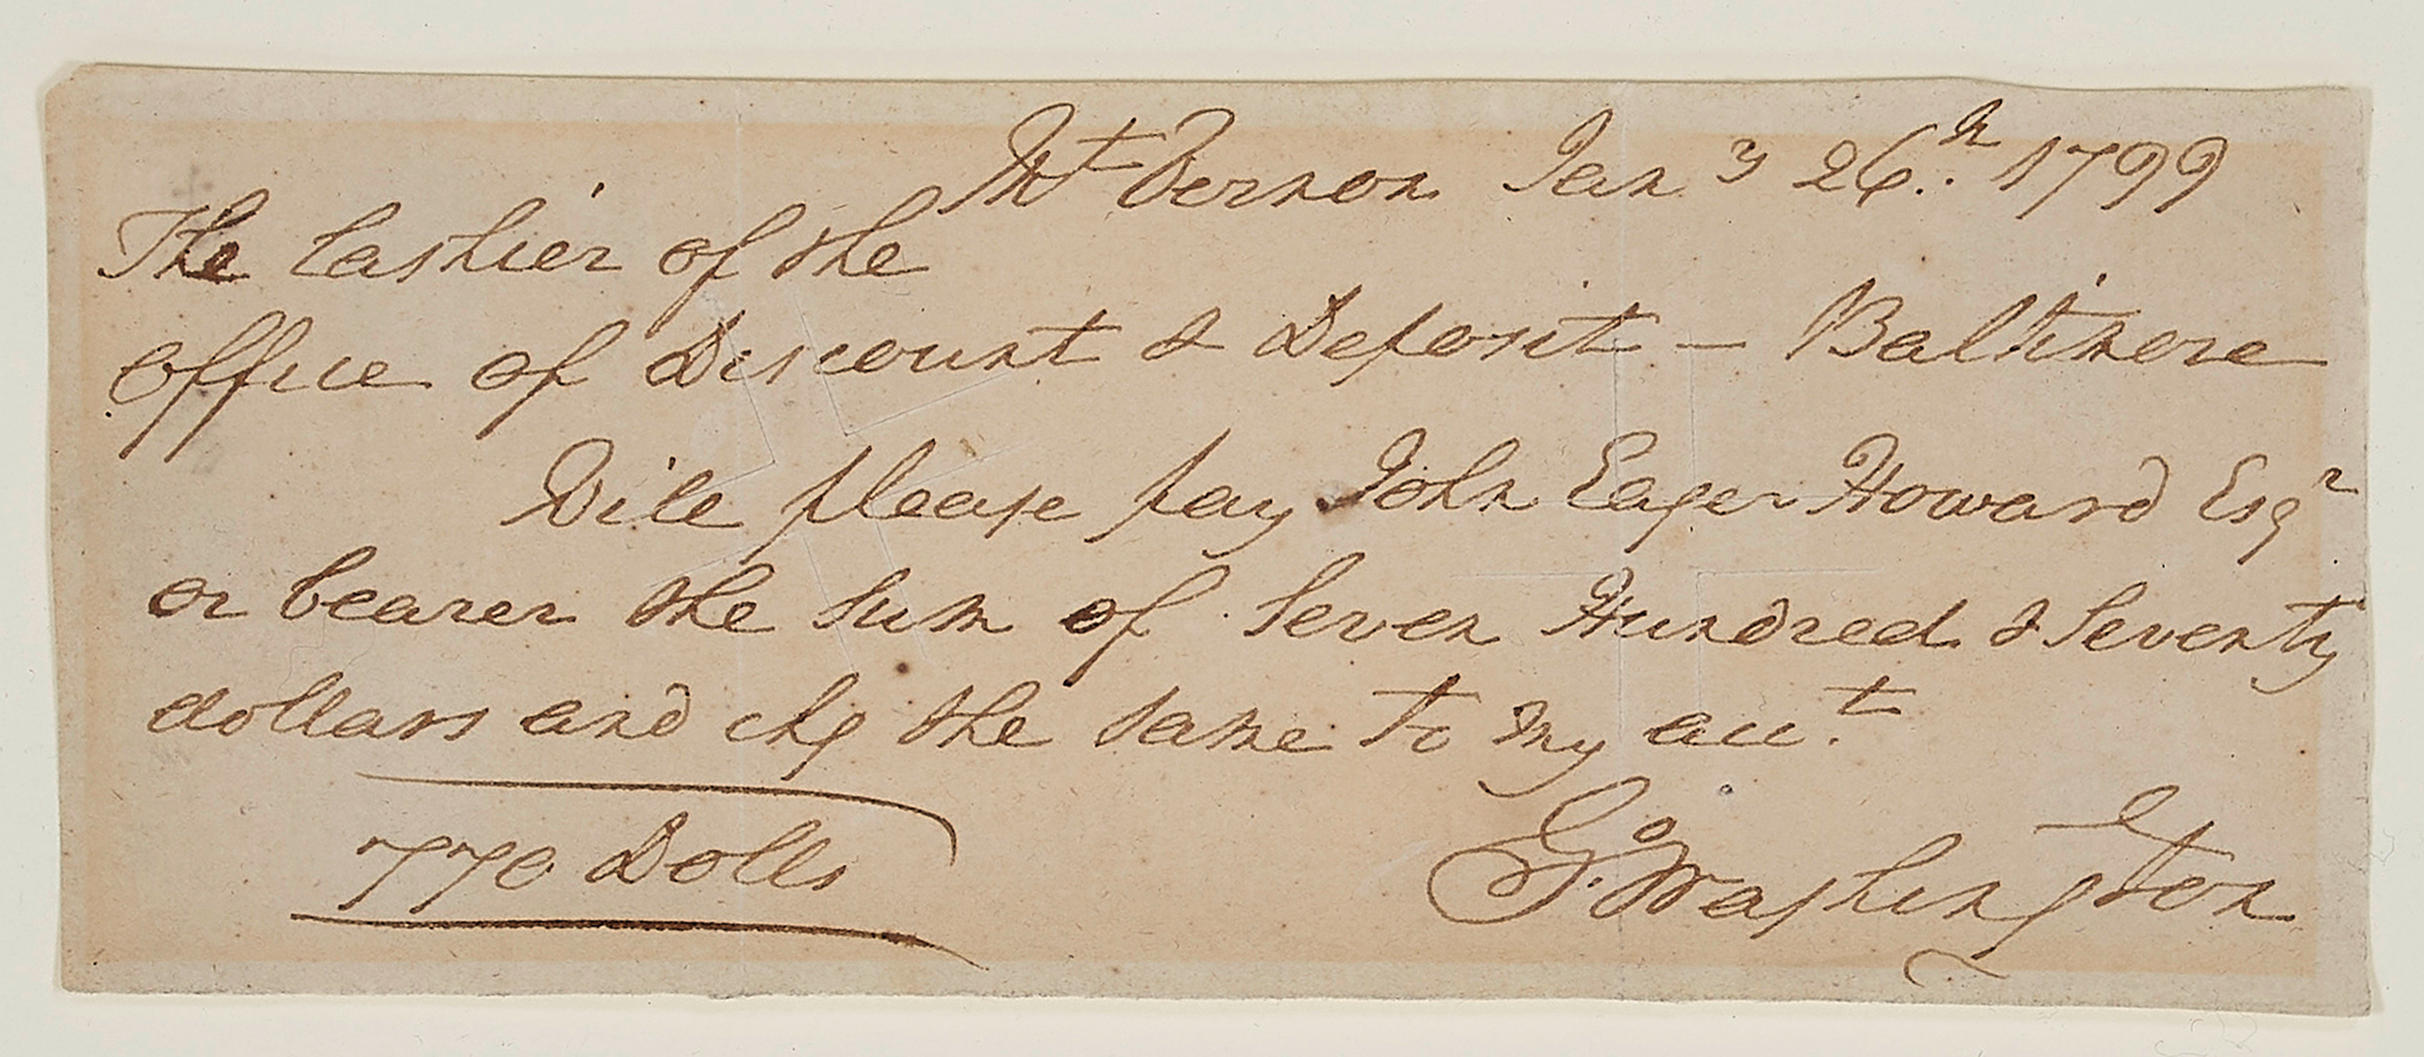 Mt Vernon Jany 26th 1799
The Cashier of the
Office of Discount & Deposit — Baltimore
Will please pay John Eager Howard Esqr
or bearer the sum of Seven Hundred & Seventy
dollars and chg the same to my acct
770 Dolls
Go Washington